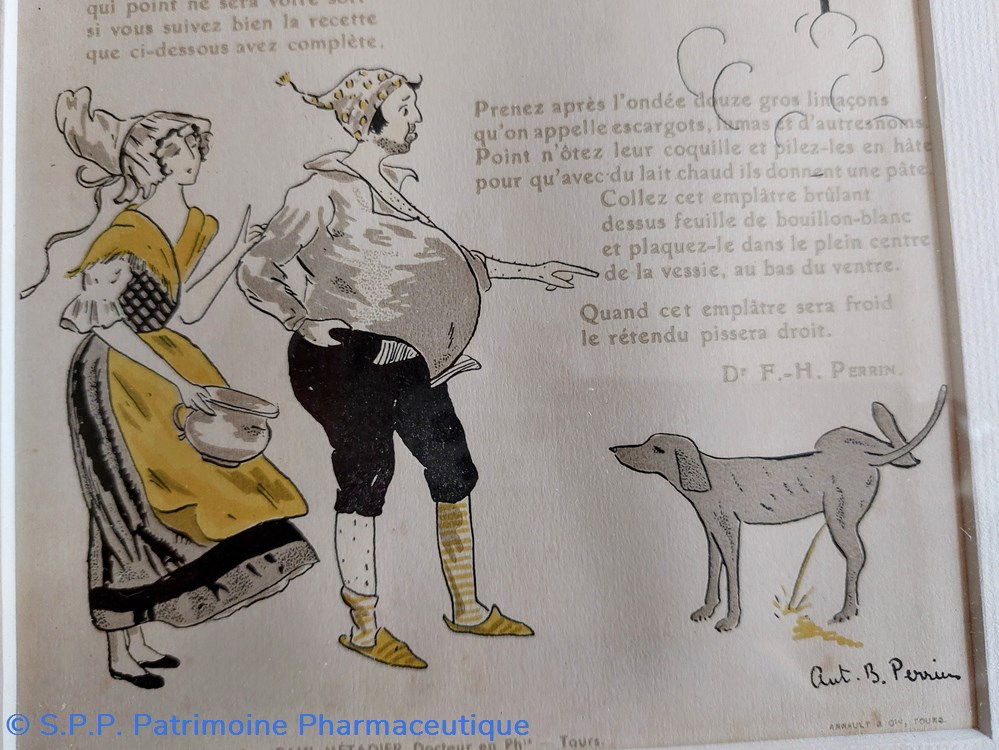 qui point ne sera votre
si vous suivez bien la recette
que ci-dessous avez complète.
Prenez après l'ondée douze gros limaçons
qu'on appelle escargots, lumas et d'autres noms.
Point n'ôtez leur coquille et pilez-les en hâte
pour qu'avec du lait chaud ils donnent une pâte.
Collez cet emplâtre brûlant
dessus feuille de bouillon-blanc
et plaquez-le dans le plein centre
de la vessie, au bas du ventre.
Quand cet emplâtre sera froid
le rétendu pissera droit.
Dr F.-H. PERRIN.
Ant. B. Perrin
ARRAULT & Cie, TOURS.
MÉTADIER, Docteur en Phie — Tours.
© S.P.P. Patrimoine Pharmaceutique